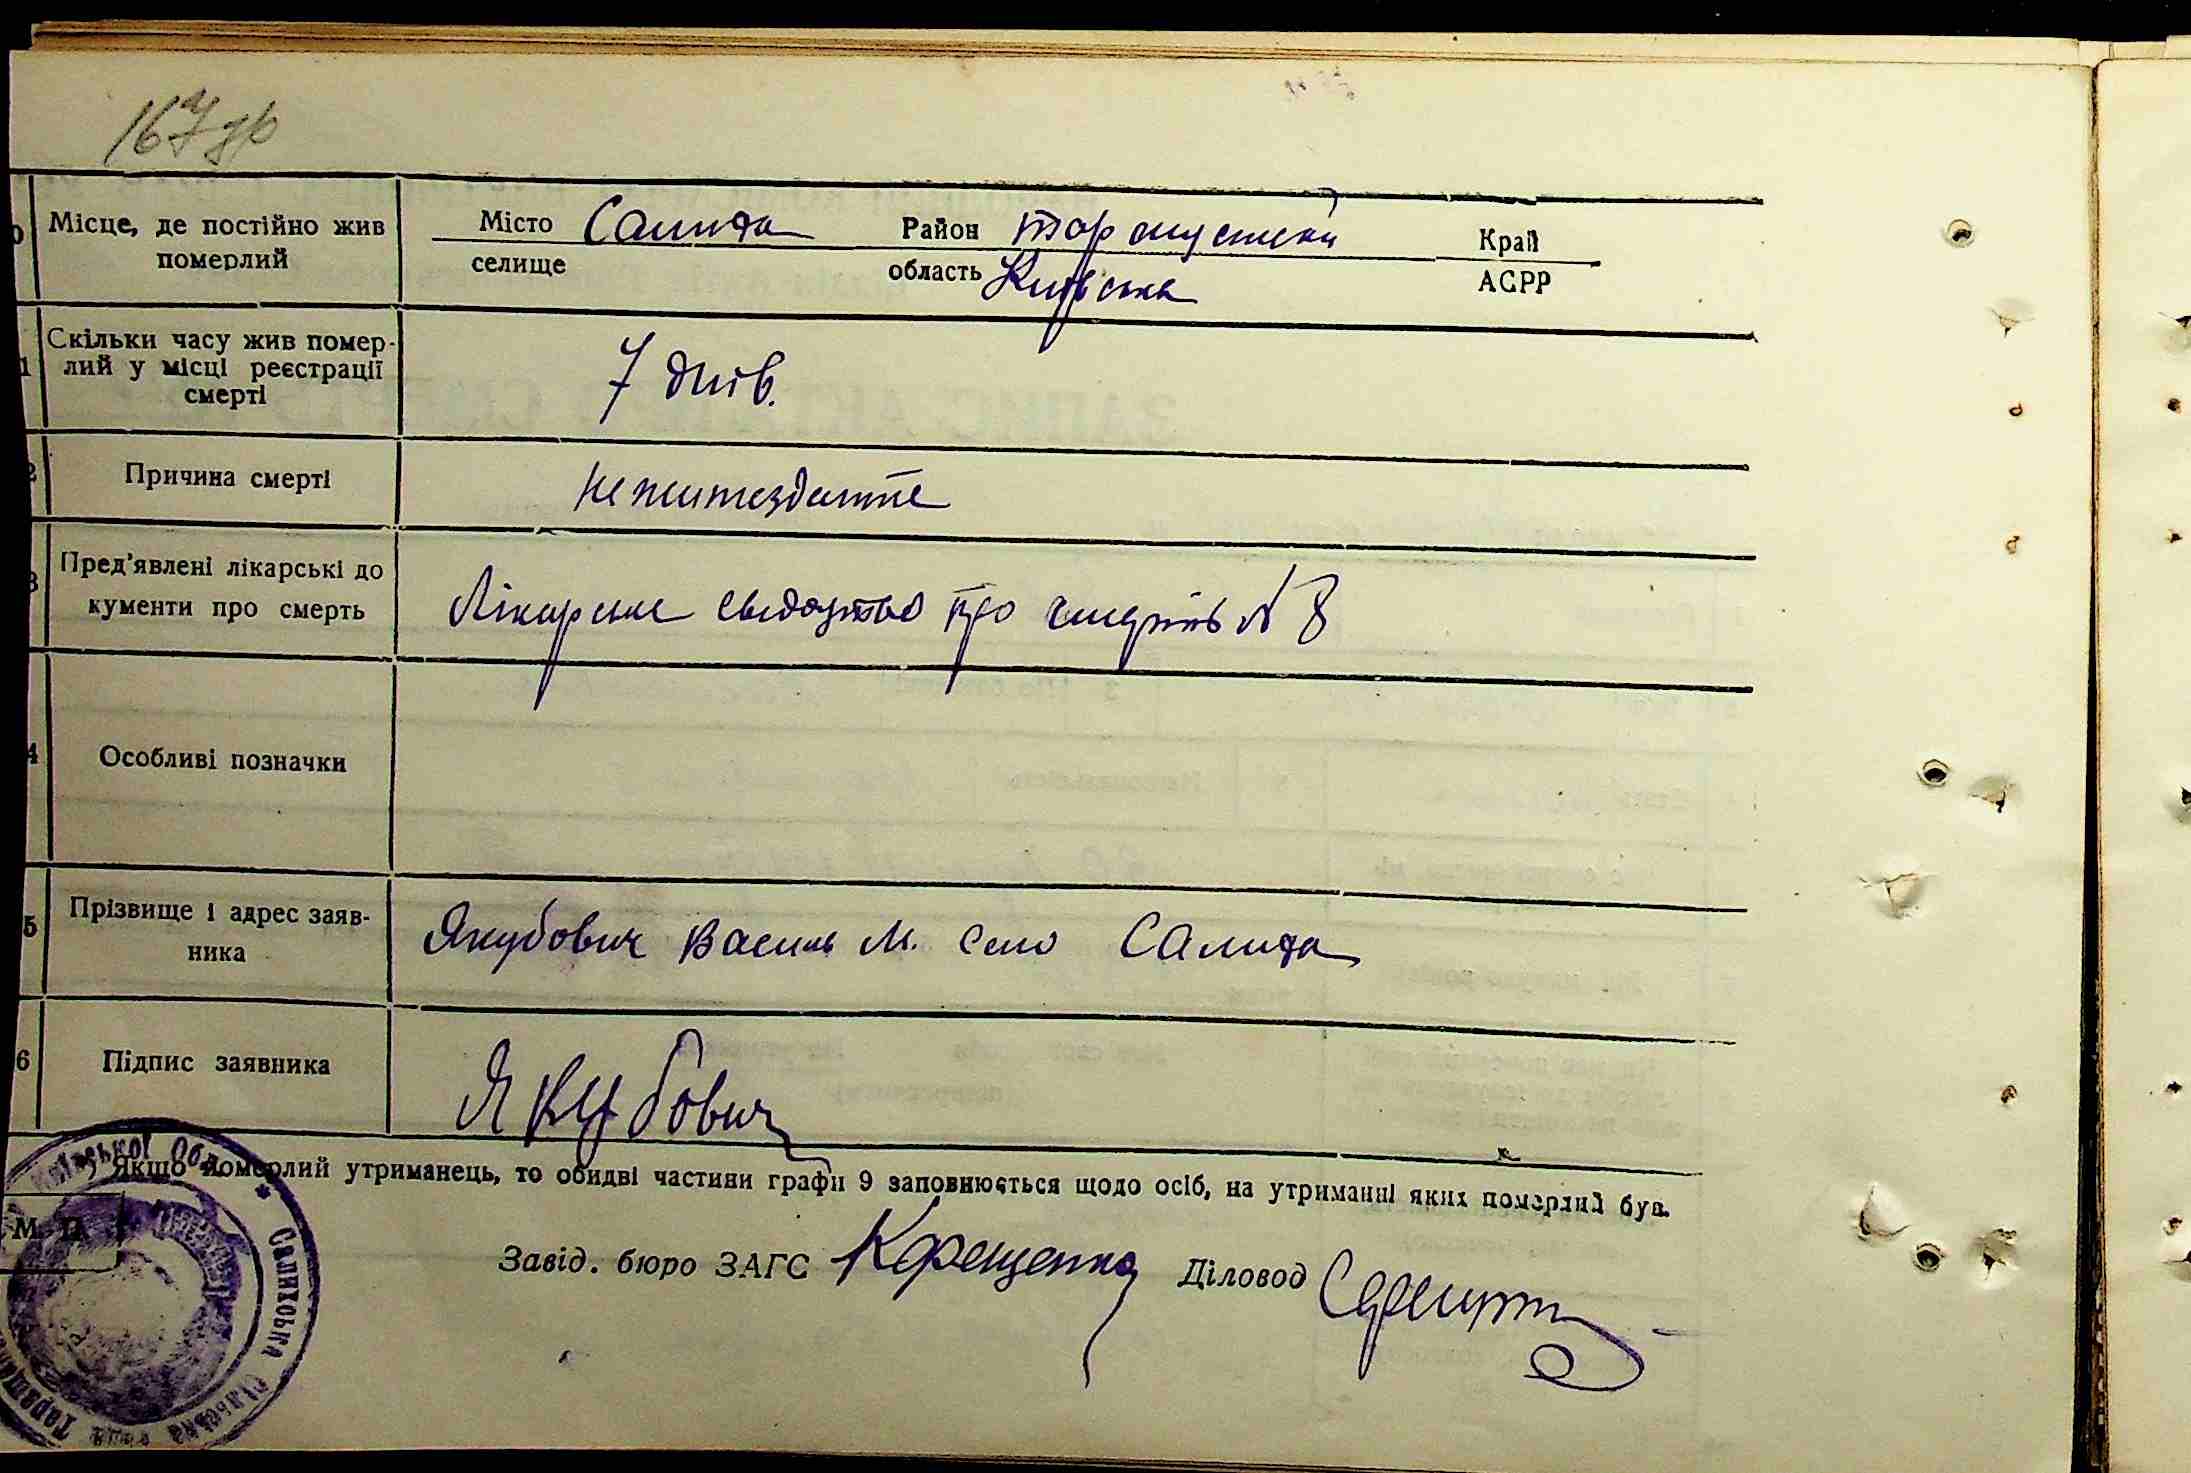 167 зр
Місце, де постійно жив померлий
Місто Салиха Район Таращуський Край
селище область Київська АСРР
Скільки часу жив помер-
лий у місці реєстрації
смерті
7 днів.
Причина смерті
Нежитездатне
Пред'явлені лікарські до
кументи про смерть
Лікарське свидоцтво про смерть № 8
Особливі позначки
5 Прізвище і адрес заяв-
ника
Якубович Василь М. село Салиха
6 Підпис заявника
Якубович
Якщо померлий утриманець, то обидві частини графи 9 заповнюється щодо осіб, на утриманні яких померлий був.
М. П.
Завід. бюро ЗАГС Діловод
Київської Обл. * Салихська Сільська